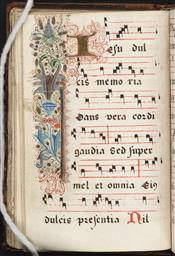 Iesu dul
cis memoria
Dans vera cordi
gaudia Sed super
mel et omnia Eiꝰ
dulcis presentia Nil